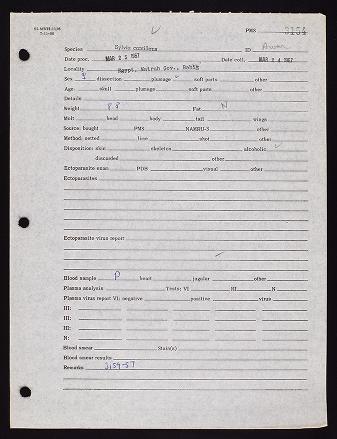 PMS 3154
Species Sylvia conspicillata ID
Date proc. MAR 25 1967 Date coll. MAR 24 1967
Locality Egypt, Matruh Gov., Bahig
Sex dissection plumage soft parts other
Age: skull plumage soft parts other
Details
Weight 8.8 Fat N
Molt head body tail wings
Source: bought PMS NAMRU-3 other
Method: netted lime shot other
Disposition: skin skeleton alcoholic
discarded other
Ectoparasite exam PDS visual other
Ectoparasites
Ectoparasite virus report
Blood sample P heart jugular other
Plasma analysis Tests: VI HI N
Plasma virus report VI: negative positive virus
HI:
HI:
HI:
N:
Blood smear Stain(s)
Blood smear results
Remarks 3154-57